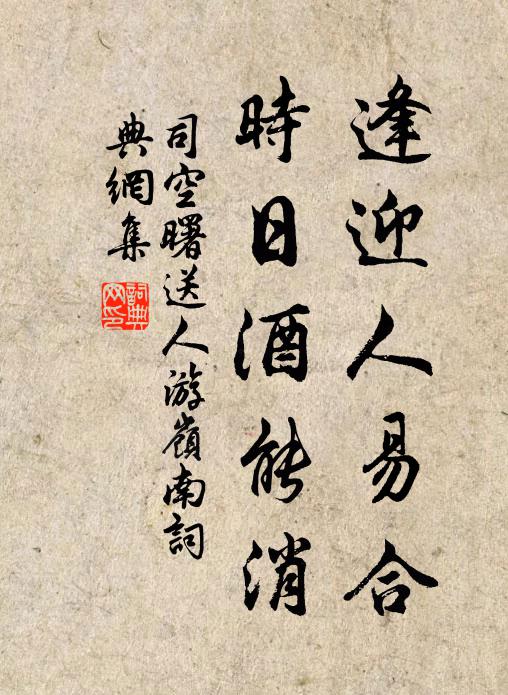 逢迎人易合
時日酒能消
司空曙送人游嶺南詞
典網集
詞典網印